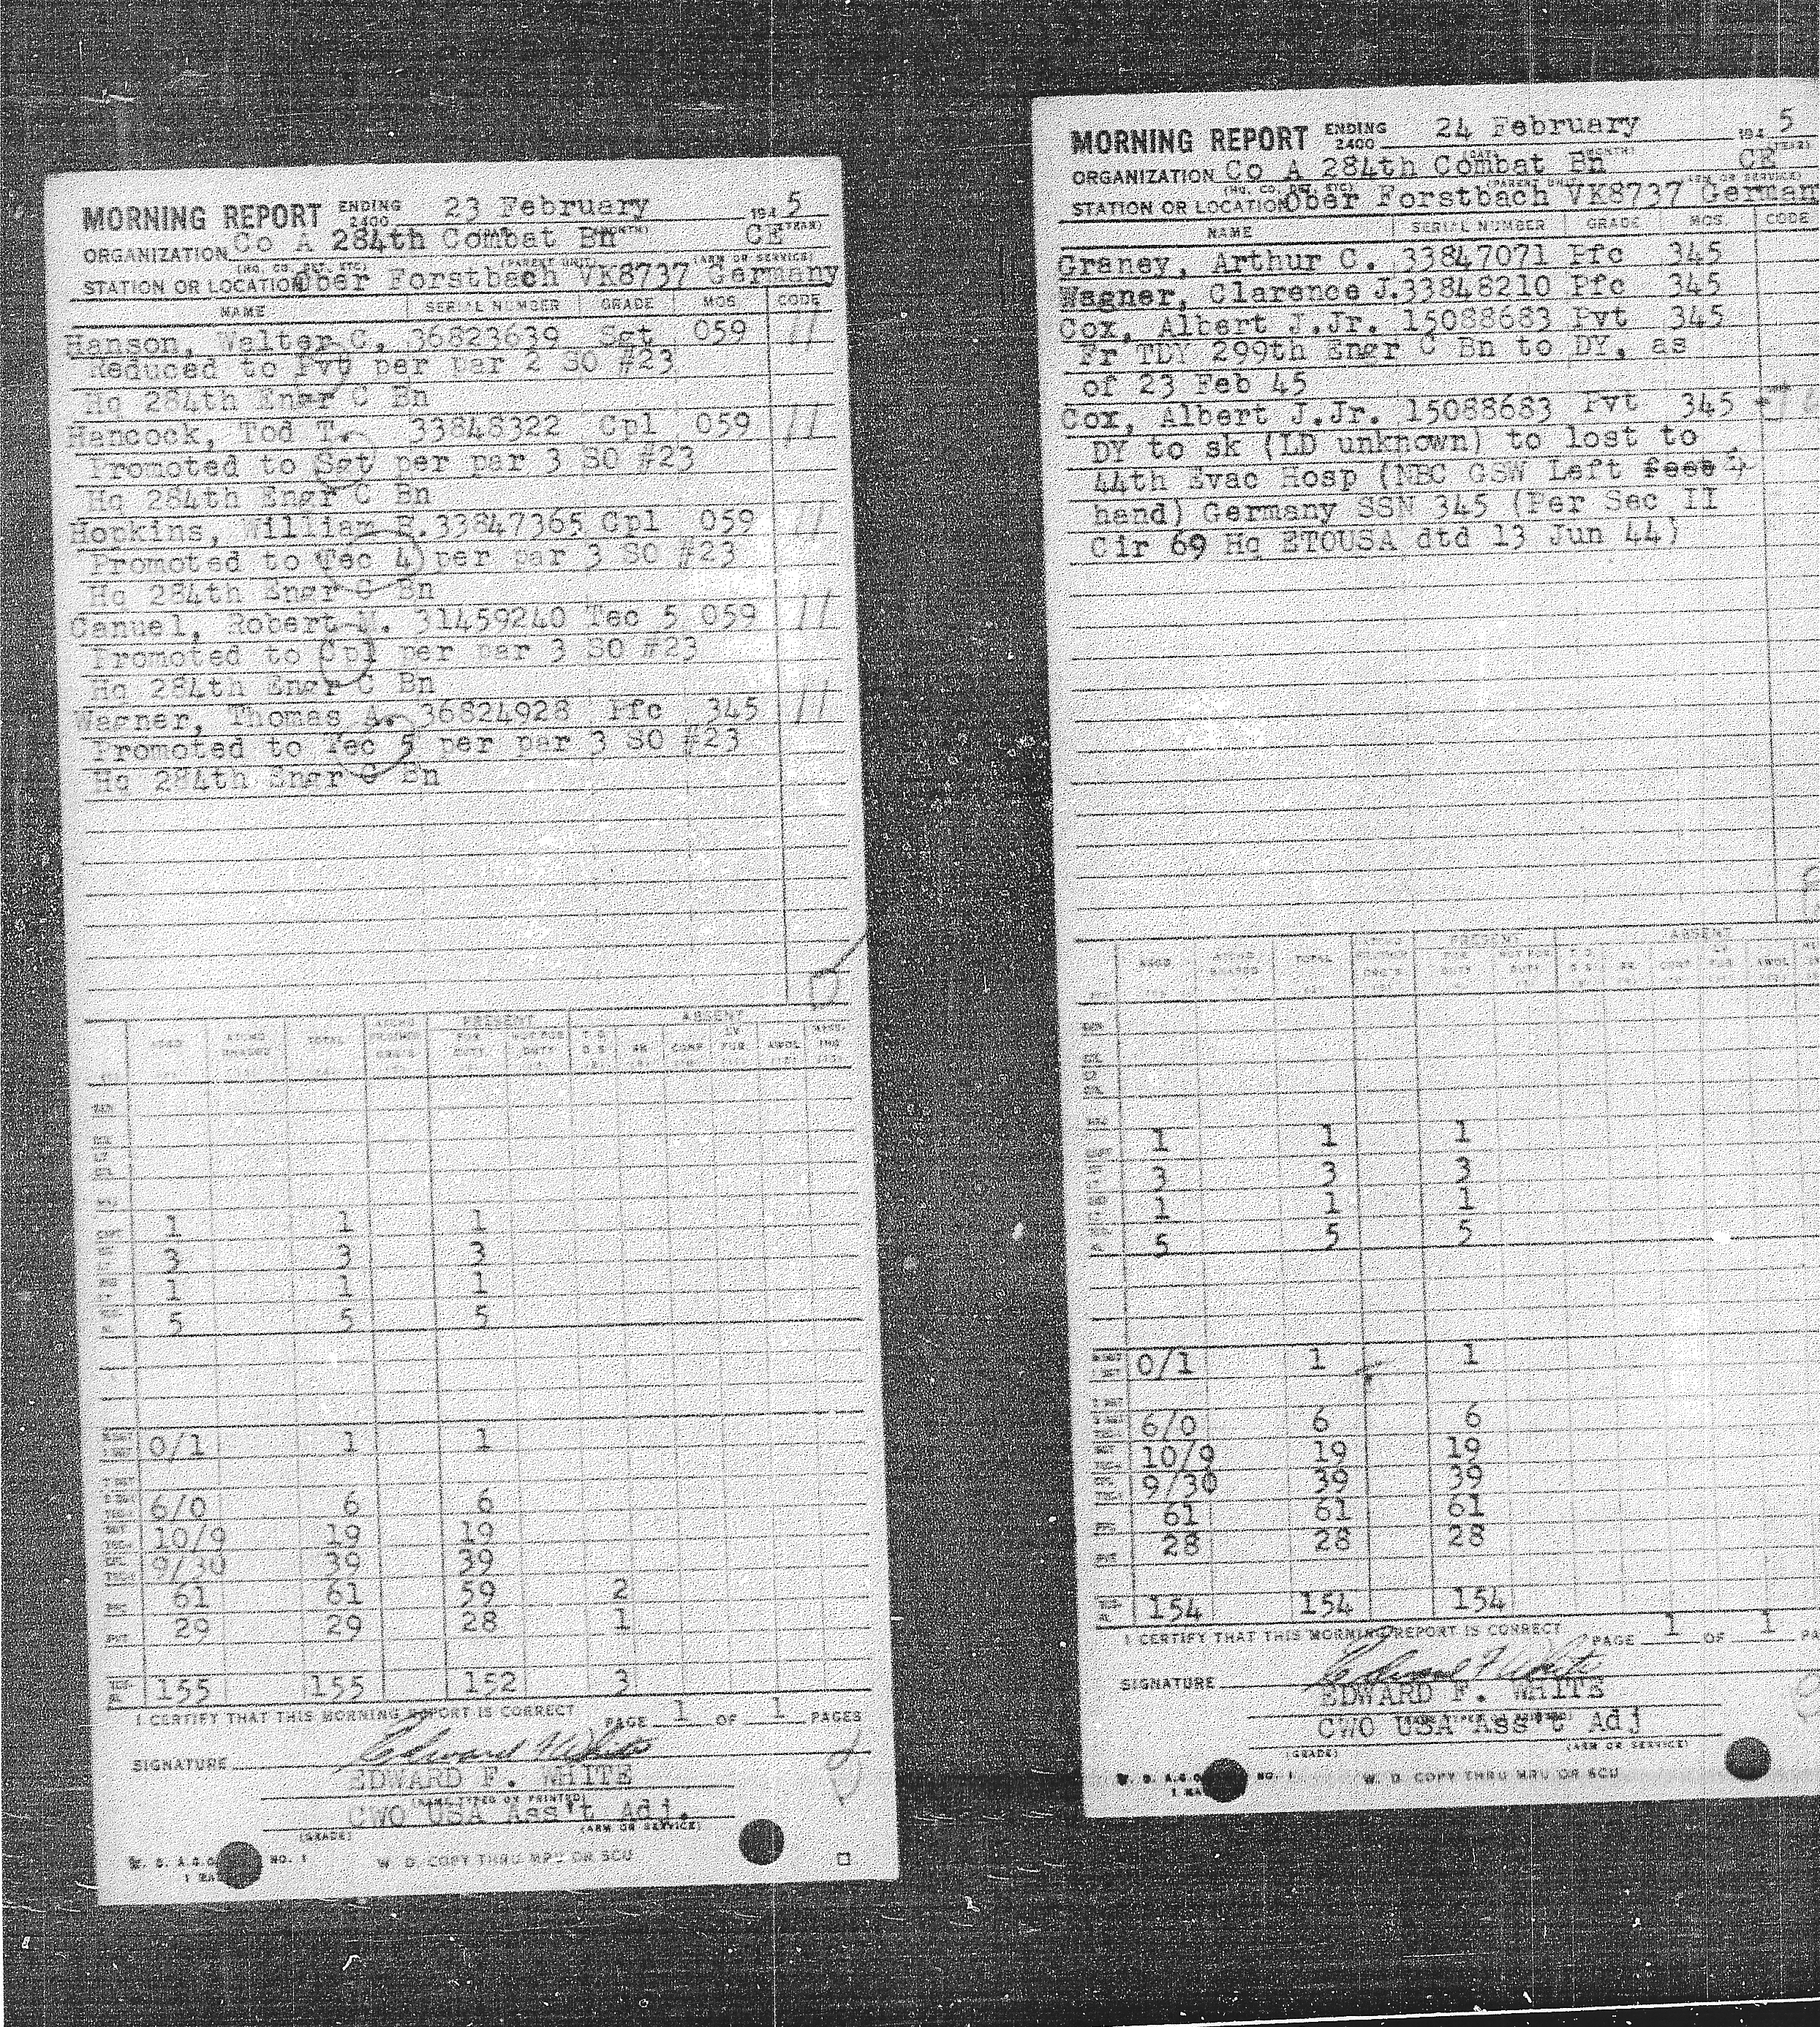 MORNING REPORT ENDING 2400 23 February 1945
ORGANIZATION Co A 284th Combat Bn CE
(HQ. CO. DET. ETC) (PARENT UNIT) (ARM OR SERVICE)
STATION OR LOCATION Ober Forstbach VK8737 Germany
NAME SERIAL NUMBER GRADE MOS CODE
Hanson, Walter C. 36823639 Sgt 059 11
Reduced to Pvt per par 2 SO #23
Hq 284th Engr C Bn
Hancock, Tod T. 33848322 Cpl 059 11
Promoted to Sgt per par 3 SO #23
Hq 284th Engr C Bn
Hopkins, William R. 33847365 Cpl 059 11
Promoted to Tec 4 per par 3 SO #23
Hq 284th Engr C Bn
Canuel, Robert N. 31459240 Tec 5 059 11
Promoted to Cpl per par 3 SO #23
Hq 284th Engr C Bn
Wagner, Thomas A. 36824928 Pfc 345 11
Promoted to Tec 5 per par 3 SO #23
Hq 284th Engr C Bn
PRESENT ABSENT
ASGD TOTAL FOR DUTY NOT FOR DUTY SK CONF LV FUR AWOL
1 1 1
3 3 3
1 1 1
5 5 5
0/1 1 1
6/0 6 6
10/9 19 19
9/30 39 39
61 61 59 2
29 29 28 1
155 155 152 3
I CERTIFY THAT THIS MORNING REPORT IS CORRECT PAGE 1 OF 1 PAGES
SIGNATURE Edward F White
EDWARD F. WHITE
(NAME TYPED OR PRINTED)
CWO USA Ass't Adj.
(GRADE) (ARM OR SERVICE)
W. D. A.G.O. NO. 1 W. D. COPY THRU MRU OR SCU
MORNING REPORT ENDING 2400 24 February 1945
ORGANIZATION Co A 284th Combat Bn CE
(HQ. CO. DET. ETC) (PARENT UNIT) (ARM OR SERVICE)
STATION OR LOCATION Ober Forstbach VK8737 German
NAME SERIAL NUMBER GRADE MOS. CODE
Graney, Arthur C. 33847071 Pfc 345
Wagner, Clarence J. 33848210 Pfc 345
Cox, Albert J.Jr. 15088683 Pvt 345
Fr TDY 299th Engr C Bn to DY, as
of 23 Feb 45
Cox, Albert J.Jr. 15088683 Pvt 345
DY to sk (LD unknown) to lost to
44th Evac Hosp (NBC GSW Left
hand) Germany SSN 345 (Per Sec II
Cir 69 Hq ETOUSA dtd 13 Jun 44)
PRESENT ABSENT
ASGD TOTAL FOR DUTY NOT FOR DUTY SK CONF LV FUR AWOL
1 1 1
3 3 3
1 1 1
5 5 5
0/1 1 1
6/0 6 6
10/9 19 19
9/30 39 39
61 61 61
28 28 28
154 154 154
I CERTIFY THAT THIS MORNING REPORT IS CORRECT PAGE 1 OF 1 PA
SIGNATURE Edward F White
EDWARD F. WHITE
CWO USA Ass't Adj
(GRADE) (ARM OR SERVICE)
W. D. A.G.O. NO. 1 W. D. COPY THRU MRU OR SCU